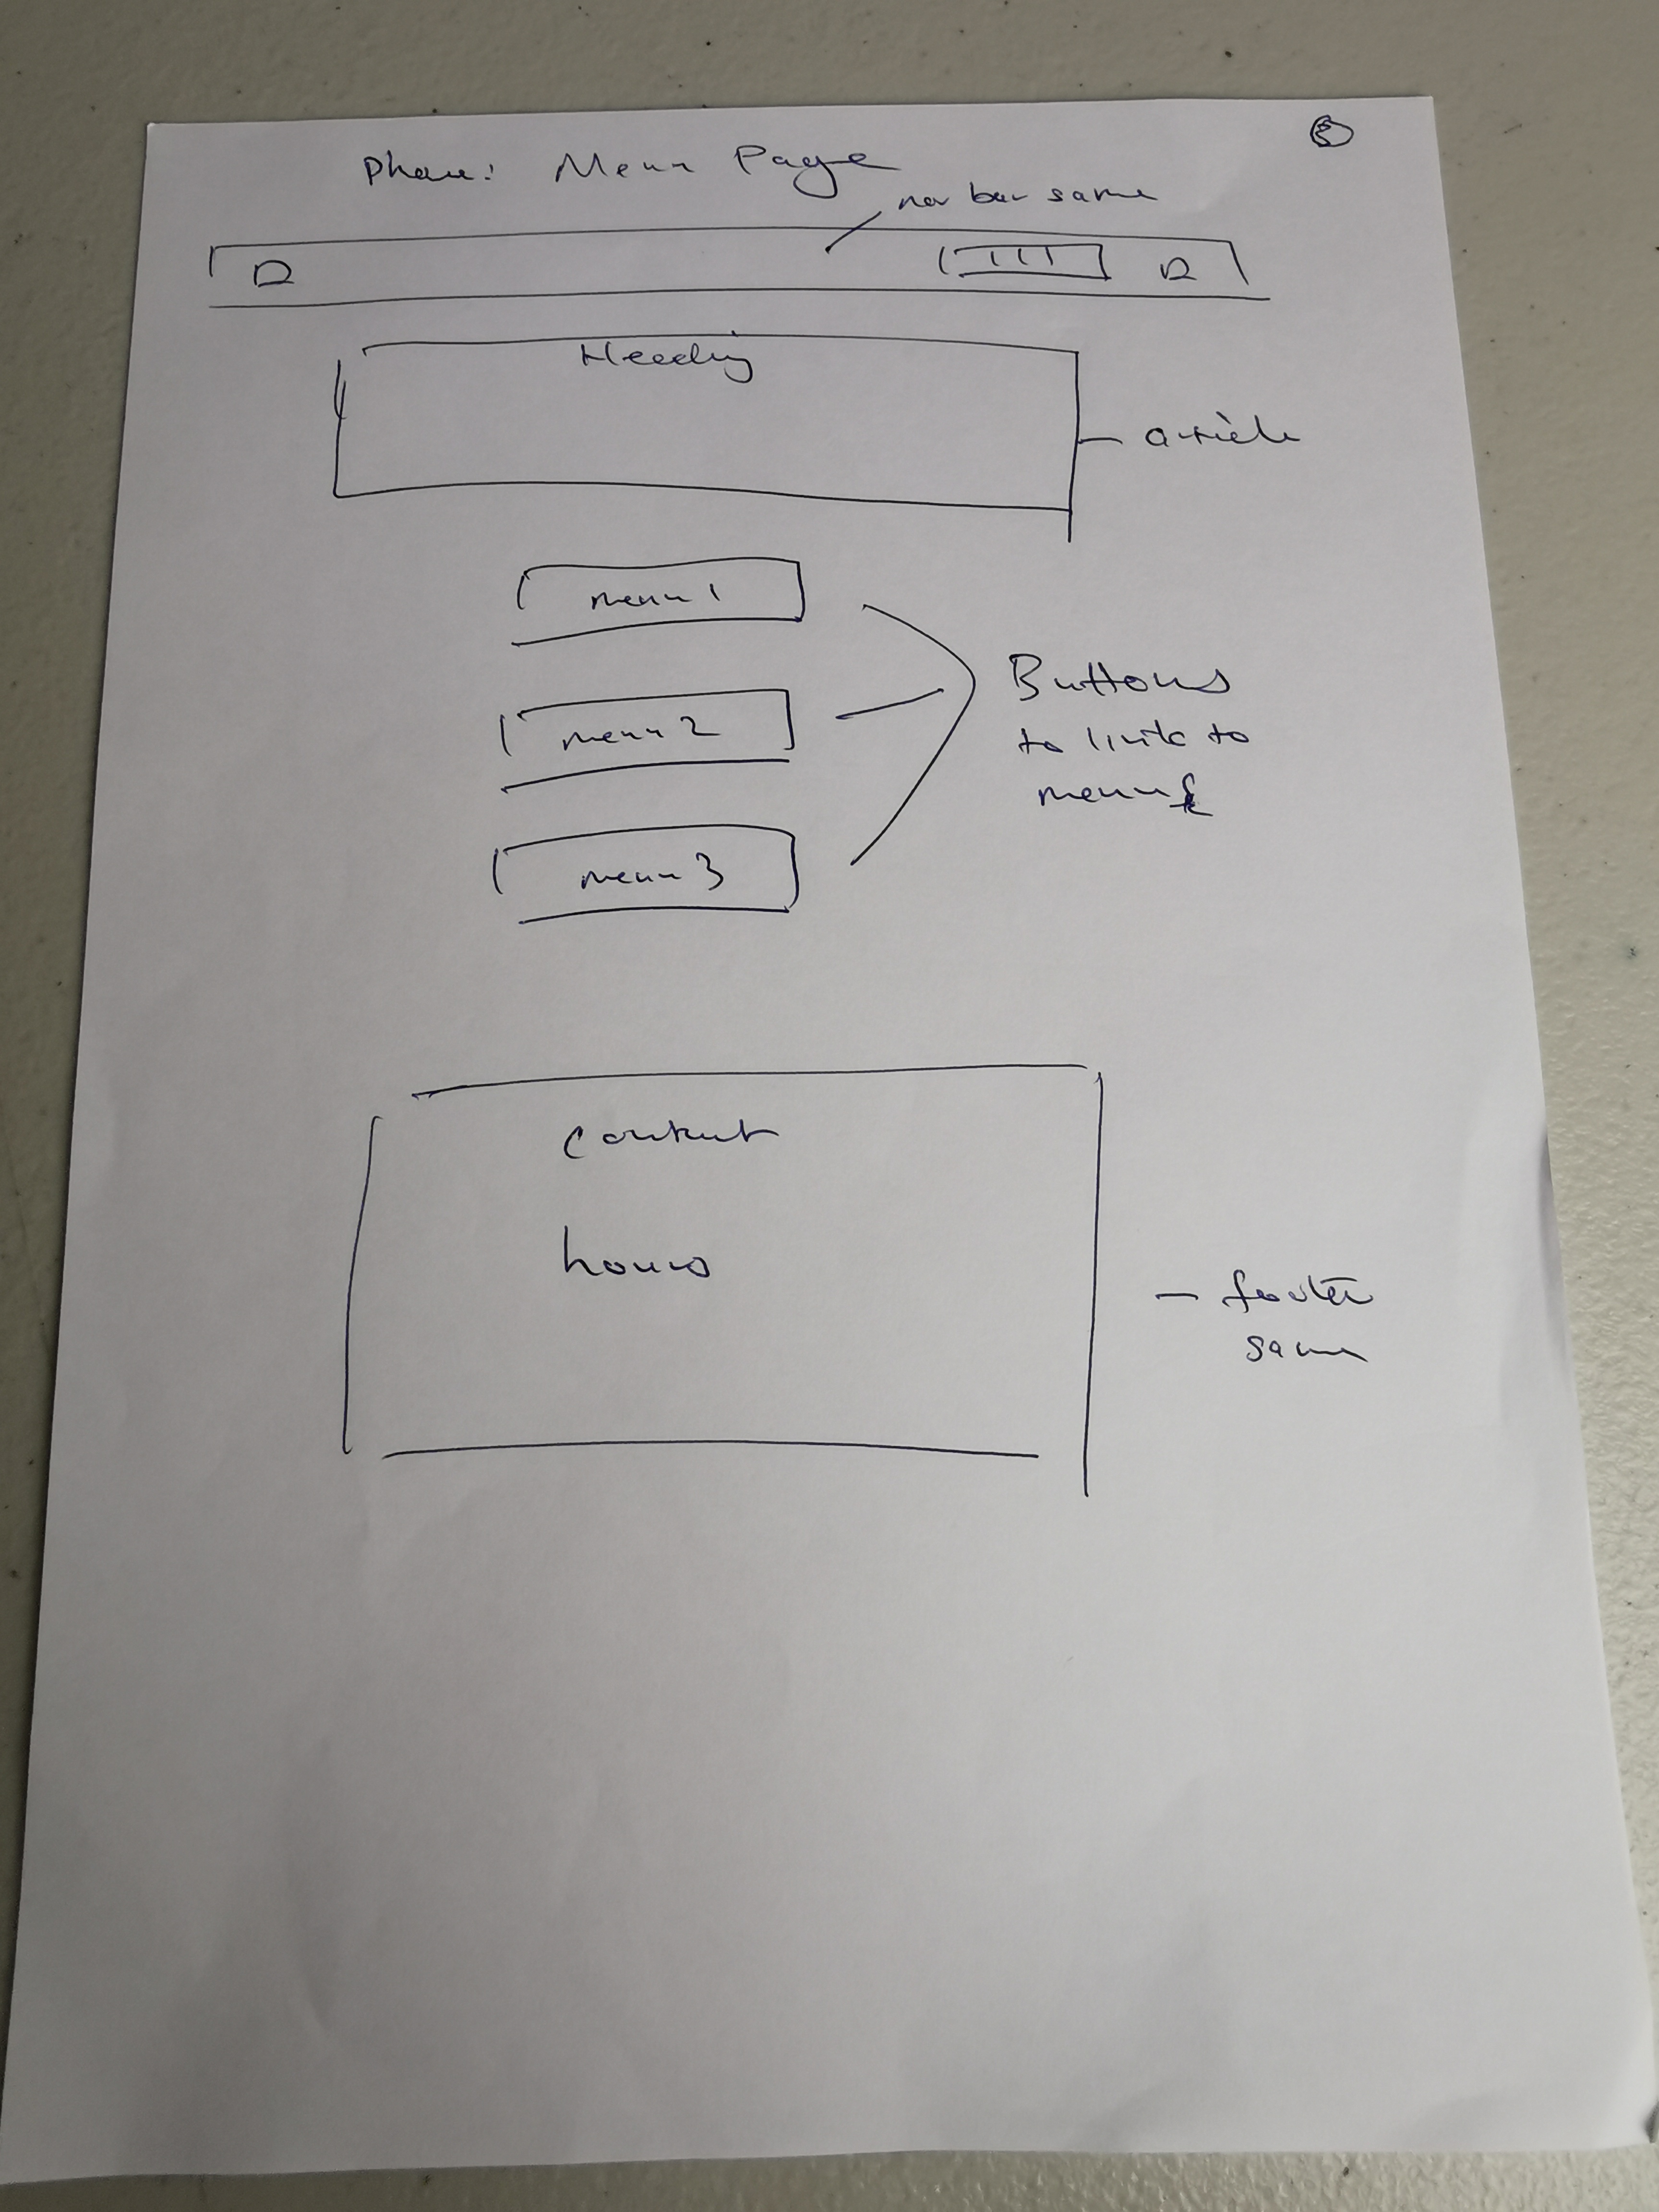 Phone: Menu Page
nav bar same
Heading
article
menu 1
menu 2
menu 3
Buttons
to link to
menus
content
hours
footer
same